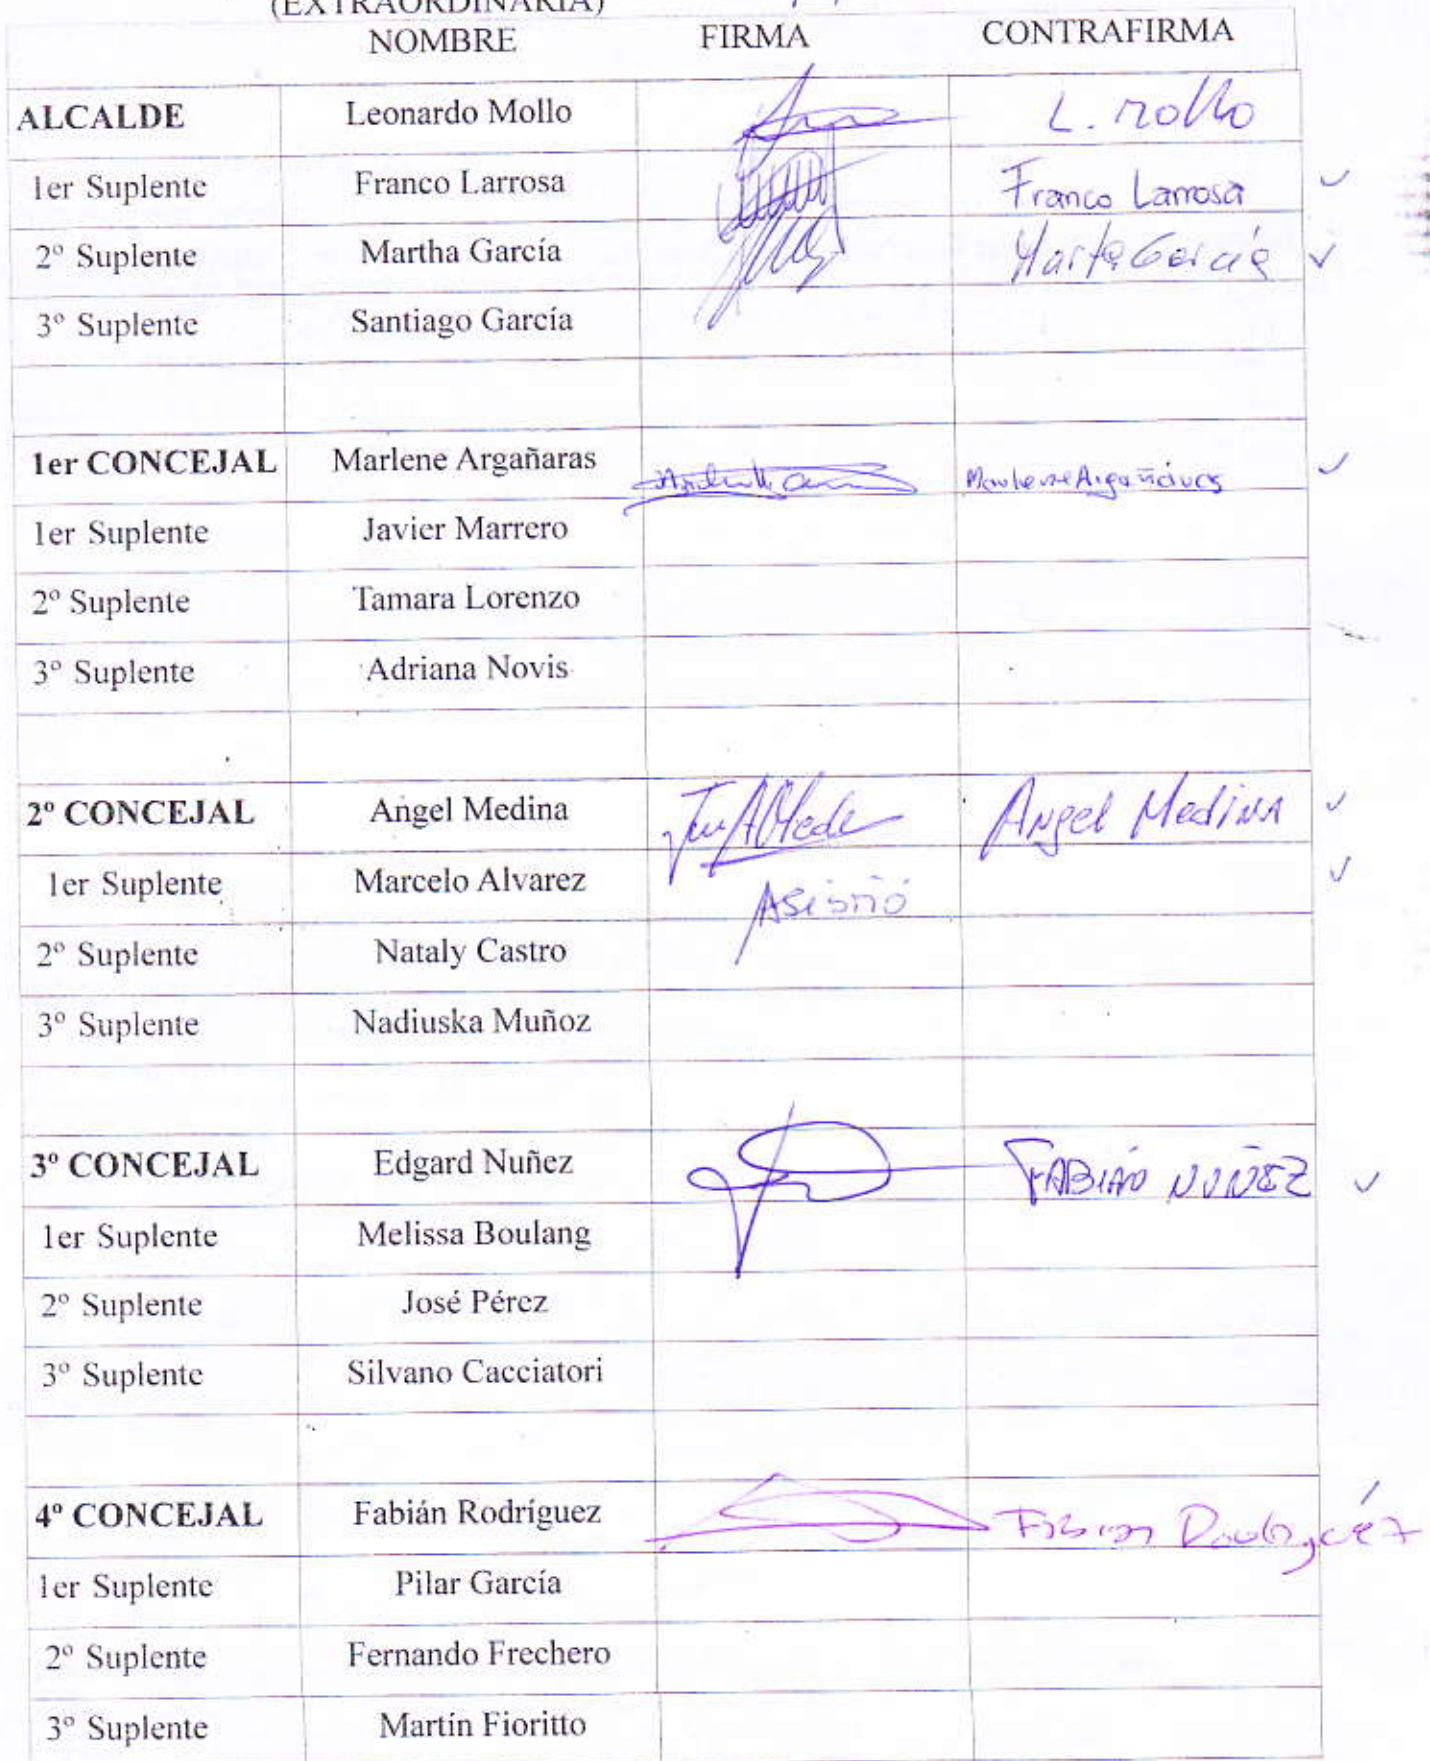 (EXTRAORDINARIA)
NOMBRE FIRMA CONTRAFIRMA
ALCALDE Leonardo Mollo L. Mollo
1er Suplente Franco Larrosa Franco Larrosa
2º Suplente Martha García Marta García
3º Suplente Santiago García
1er CONCEJAL Marlene Argañaras Marlene Argañaras
1er Suplente Javier Marrero
2º Suplente Tamara Lorenzo
3º Suplente Adriana Novis
2º CONCEJAL Angel Medina Angel Medina
1er Suplente Marcelo Alvarez Asistió
2º Suplente Nataly Castro
3º Suplente Nadiuska Muñoz
3º CONCEJAL Edgard Nuñez FABIÁN NUÑEZ
1er Suplente Melissa Boulang
2º Suplente José Pérez
3º Suplente Silvano Cacciatori
4º CONCEJAL Fabián Rodríguez Fabian Rodríguez
1er Suplente Pilar García
2º Suplente Fernando Frechero
3º Suplente Martín Fioritto